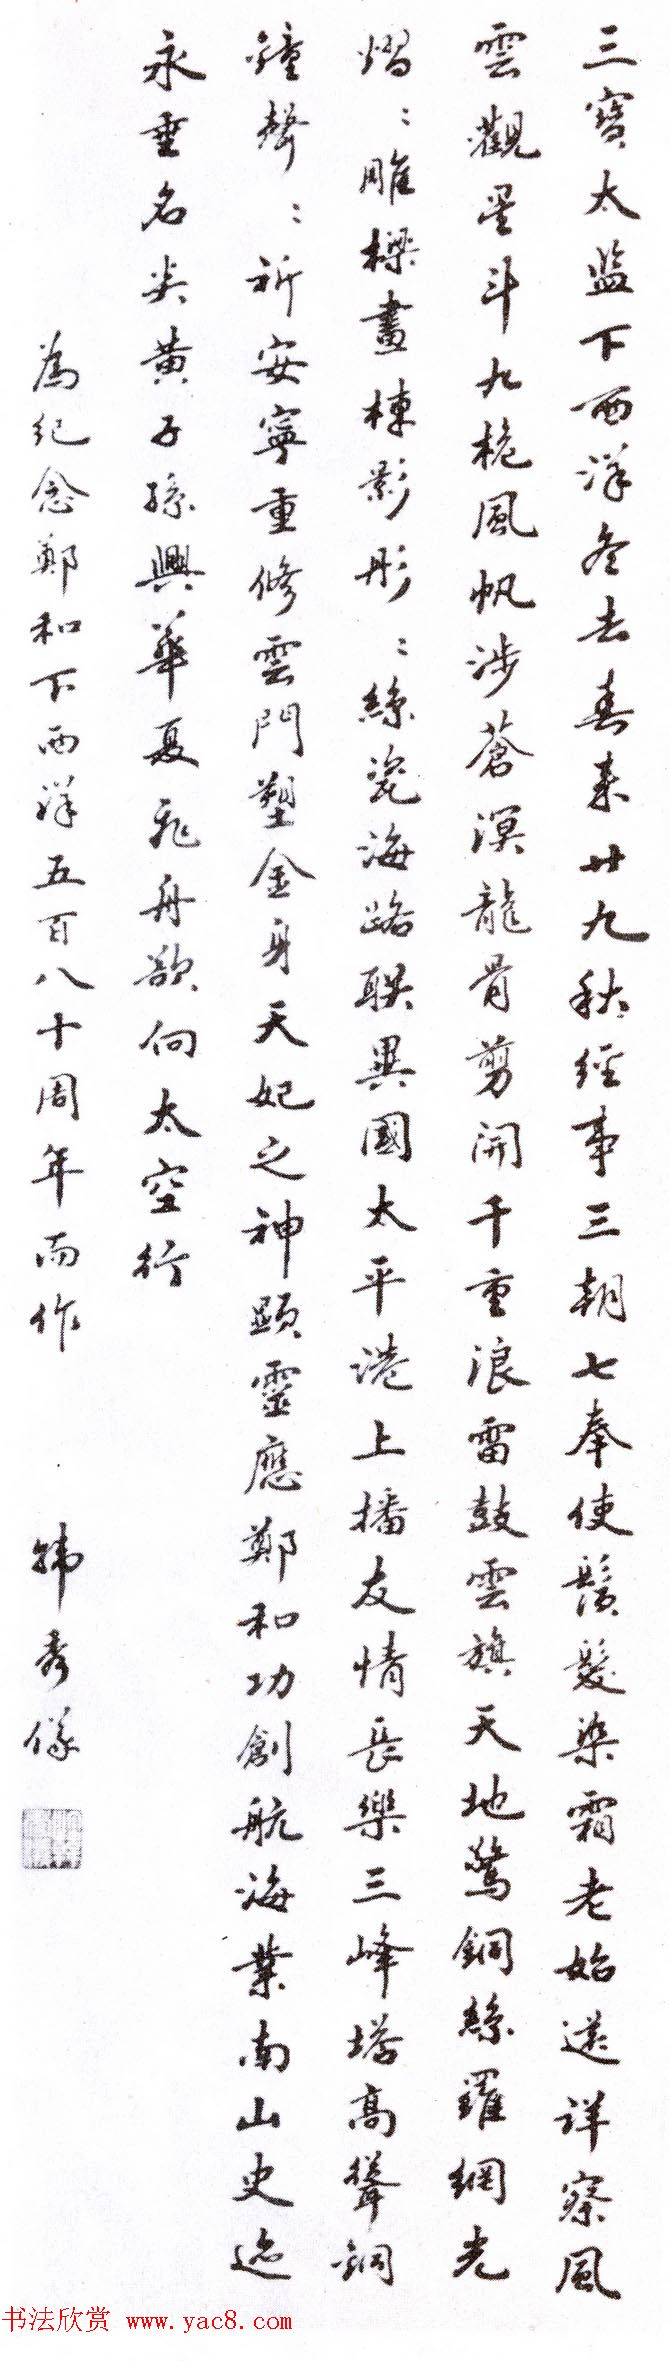 三寶太监下西洋冬去春来廿九秋經事三朝七奉使鬢髮染霜老始還詳察風
雲觀星斗九桅風帆涉蒼溟龍骨剪開千重浪雷鼓雲旗天地驚銅絲羅網光
熠：雕樑畫棟影彤：絲瓷海路联異國太平港上播友情長樂三峰塔高聳銅
鐘聲：祈安寧重修雲門塑金身天妃之神顕靈應鄭和功創航海業南山史迹
永垂名炎黄子孫興華夏飛舟欲向太空行
為纪念鄭和下西洋五百八十周年而作
韩秀儀
书法欣赏 www.yac8.com